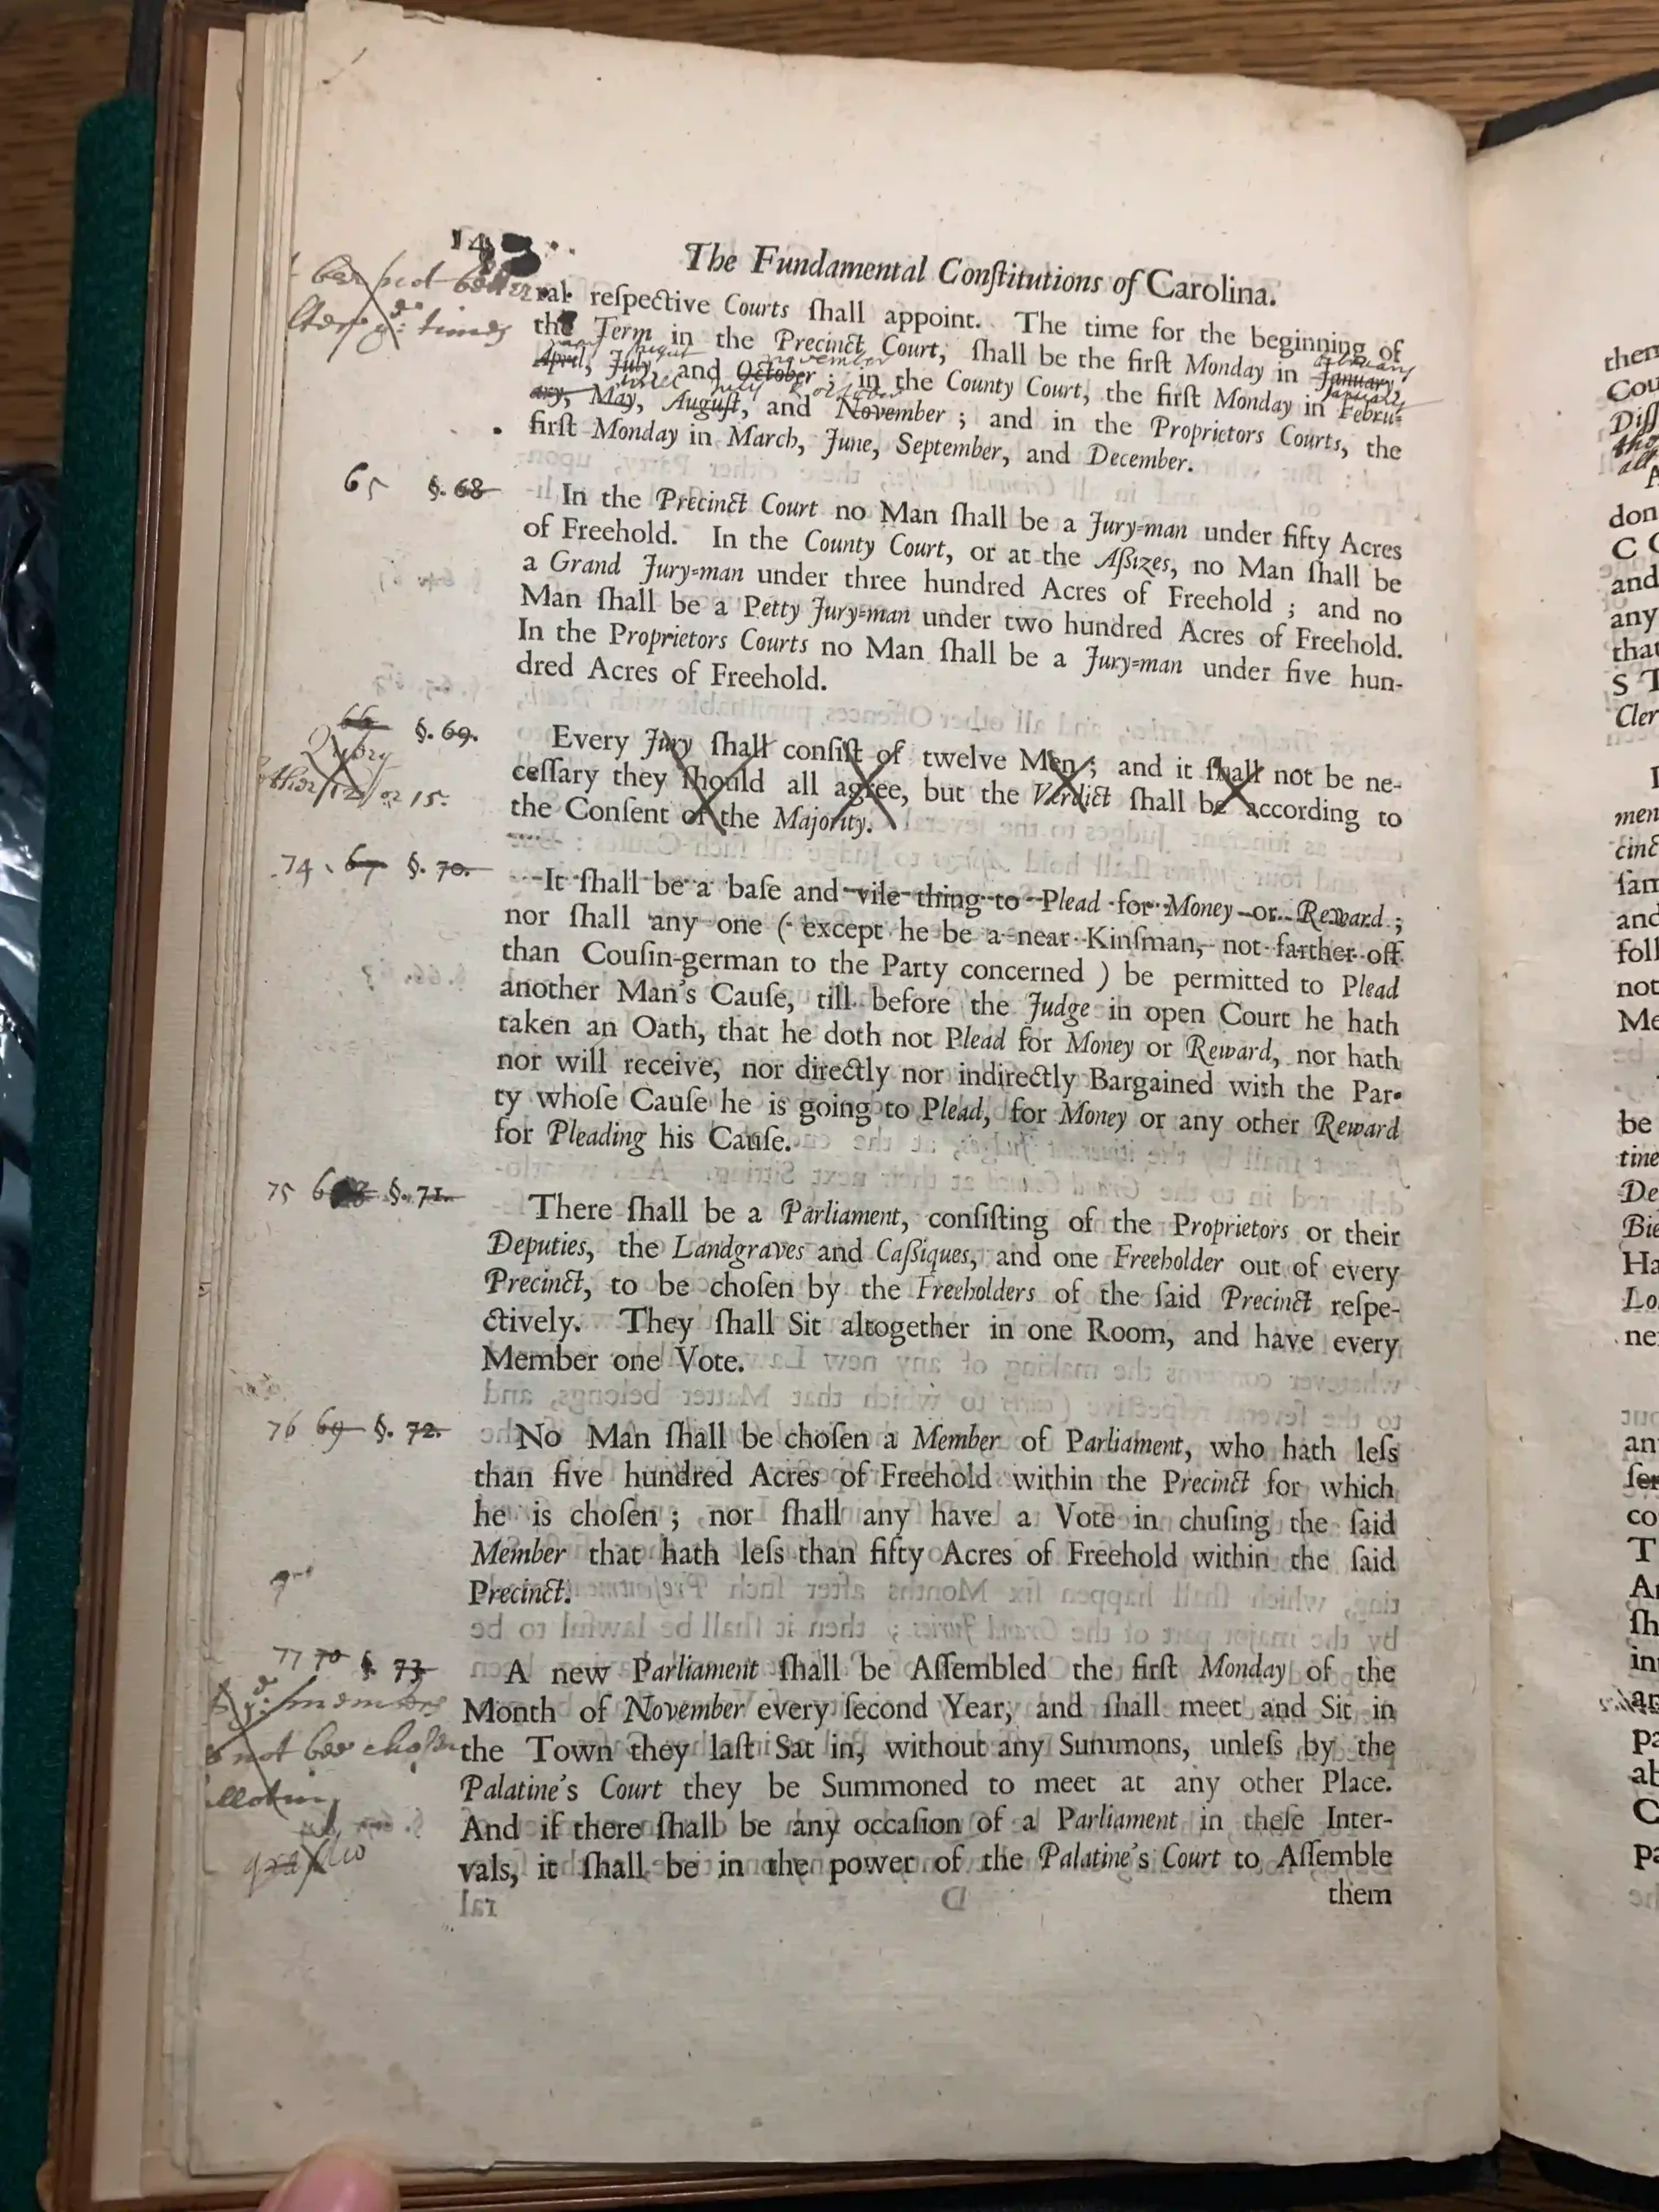 14
The Fundamental Conſtitutions of Carolina.
ral reſpective Courts ſhall appoint. The time for the beginning of
times
the Term in the Precinct Court, ſhall be the firſt Monday in January,
november
April, July, and October; in the County Court, the firſt Monday in Febru-
July October January
ary, May, Auguſt, and November; and in the Proprietors Courts, the
firſt Monday in March, June, September, and December.
65 §. 68
In the Precinct Court no Man ſhall be a Jury-man under fifty Acres
of Freehold. In the County Court, or at the Aſſizes, no Man ſhall be
a Grand Jury-man under three hundred Acres of Freehold; and no
Man ſhall be a Petty Jury-man under two hundred Acres of Freehold.
In the Proprietors Courts no Man ſhall be a Jury-man under five hun-
dred Acres of Freehold.
66 §. 69.
Every Jury ſhall conſiſt of twelve Men; and it ſhall not be ne-
ceſſary they ſhould all agree, but the Verdict ſhall be according to
or 15.
the Conſent of the Majority.
74 67 §. 70.
It ſhall be a baſe and vile thing to Plead for Money or Reward;
nor ſhall any one ( except he be a near Kinſman, not farther off
than Couſin-german to the Party concerned ) be permitted to Plead
another Man's Cauſe, till before the Judge in open Court he hath
taken an Oath, that he doth not Plead for Money or Reward, nor hath
nor will receive, nor directly nor indirectly Bargained with the Par-
ty whoſe Cauſe he is going to Plead, for Money or any other Reward
for Pleading his Cauſe.
75 §. 71.
There ſhall be a Parliament, conſiſting of the Proprietors or their
Deputies, the Landgraves and Caſſiques, and one Freeholder out of every
Precinct, to be choſen by the Freeholders of the ſaid Precinct reſpe-
ctively. They ſhall Sit altogether in one Room, and have every
Member one Vote.
76 69 §. 72.
No Man ſhall be choſen a Member of Parliament, who hath leſs
than five hundred Acres of Freehold within the Precinct for which
he is choſen; nor ſhall any have a Vote in chuſing the ſaid
Member that hath leſs than fifty Acres of Freehold within the ſaid
Precinct.
77 70 §. 73
A new Parliament ſhall be Aſſembled the firſt Monday of the
members
Month of November every ſecond Year, and ſhall meet and Sit in
not bee choſen
the Town they laſt Sat in, without any Summons, unleſs by the
Palatine's Court they be Summoned to meet at any other Place.
And if there ſhall be any occaſion of a Parliament in theſe Inter-
vals, it ſhall be in the power of the Palatine's Court to Aſſemble
them